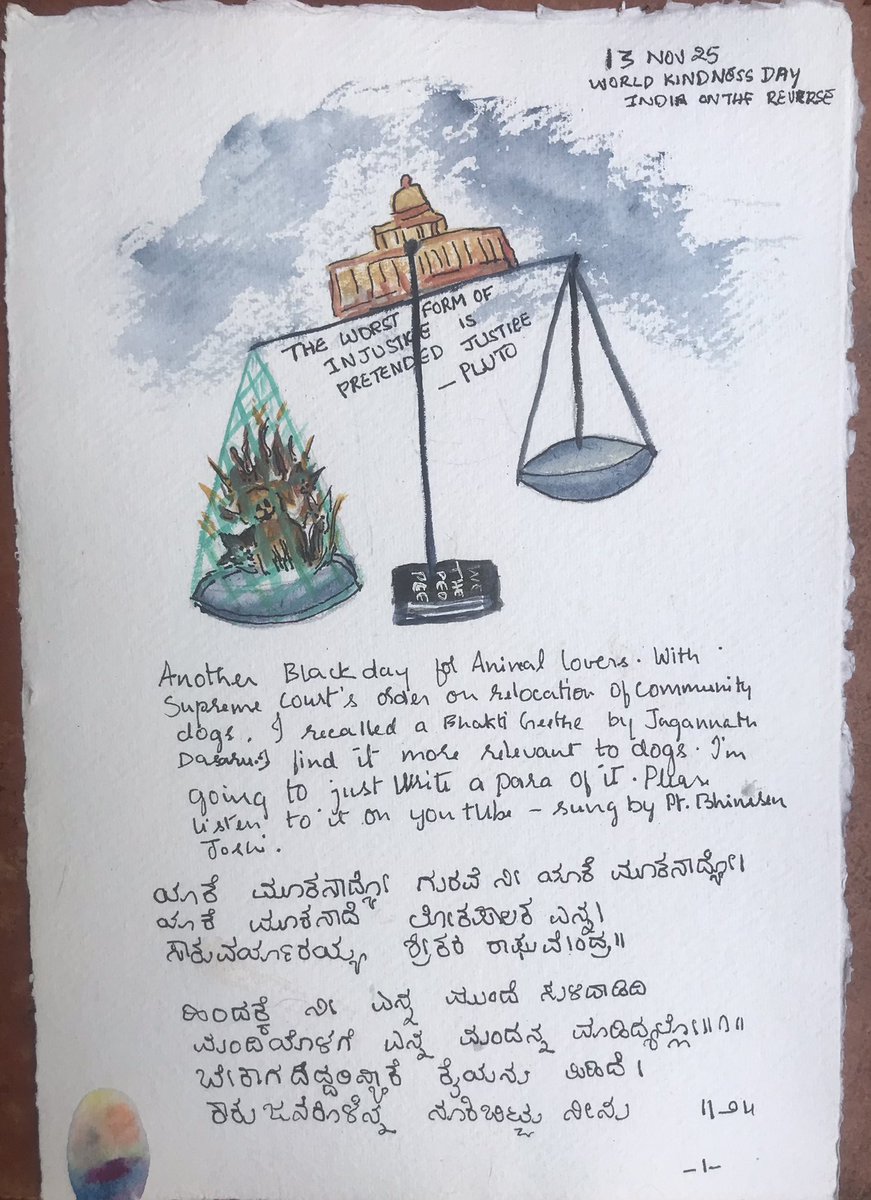 13 NOV 25
WORLD KINDNESS DAY
INDIA ON THE REVERSE
THE WORST FORM OF
INJUSTICE IS
PRETENDED JUSTICE
— PLUTO
WE
THE
PEO
PLE
Another Black day for Animal lovers. With
Supreme Court's order on relocation of community
dogs. I recalled a Bhakti Geethe by Jagannath
Dasaru. I find it more relevant to dogs. I'm
going to just write a para of it. Please
listen to it on youtube – sung by Pt. Bhimsen
Joshi.
ಯಾಕೆ ಮೂಕನಾದ್ಯೋ ಗುರವೆ ನೀ ಯಾಕೆ ಮೂಕನಾದ್ಯೋ।
ಯಾಕೆ ಮೂಕನಾದೆ ಲೋಕಪಾಲಕ ಎನ್ನ।
ಸಾಕುವರ್ಯಾರಯ್ಯ ಶ್ರೀಕರ ರಾಘವೇಂದ್ರ॥
ಹಿಂದಕ್ಕೆ ನೀ ಎನ್ನ ಮುಂದೆ ಸುಳಿದಾಡಿದಿ
ಮಂದಿಯೊಳಗೆ ಎನ್ನ ಮಂದನ್ನ ಮಾಡಿದ್ಯಲ್ಲೋ॥೧॥
ಬೇಕಾಗದಿದ್ದರಿನ್ಯಾಕೆ ಕೈಯನು ಪಿಡಿದೆ।
ಕಾಕು ಜನರೊಳೆನ್ನ ನೂಕಿಬಿಟ್ಟು ನೀನು
-1-